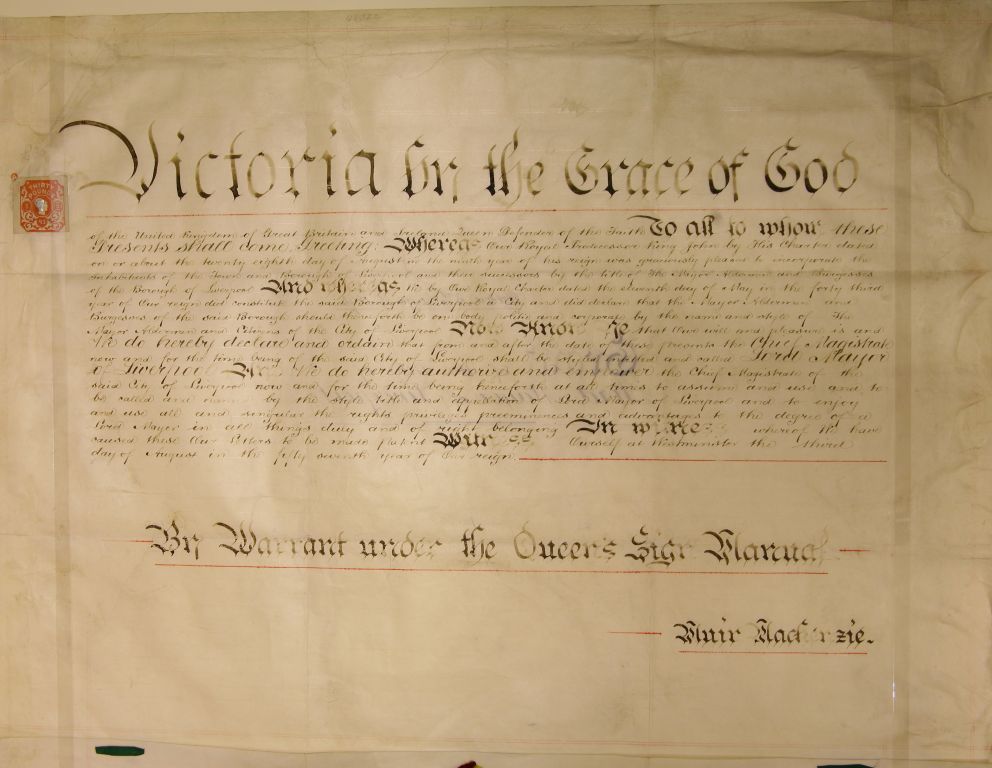 Victoria by the Grace of God
THIRTY POUNDS
of the United Kingdom of Great Britain and Ireland Queen Defender of the Faith To all to whom these
Presents shall come Greeting: Whereas Our Royal Predecessor King John by His Charter dated
on or about the twenty eighth day of August in the ninth year of his reign was graciously pleased to incorporate the
Inhabitants of the Town and Borough of Liverpool and their successors by the title of The Mayor Aldermen and Burgesses
of the Borough of Liverpool And whereas We by Our Royal Charter dated the seventh day of May in the forty third
year of Our reign did constitute the said Borough of Liverpool a City and did declare that the Mayor Aldermen and
Burgesses of the said Borough should thenceforth be one body politic and corporate by the name and style of The
Mayor Aldermen and Citizens of the City of Liverpool Now Know Ye that Our will and pleasure is and
We do hereby declare and ordain that from and after the date of these presents the Chief Magistrate
now and for the time being of the said City of Liverpool shall be styled entitled and called Lord Mayor
of Liverpool And We do hereby authorize and empower the Chief Magistrate of the
said City of Liverpool now and for the time being henceforth at all times to assume and use and to
be called and named by the style title and appellation of Lord Mayor of Liverpool and to enjoy
and use all and singular the rights privileges preeminences and advantages to the degree of a
Lord Mayor in all things duly and of right belonging In witness whereof We have
caused these Our Letters to be made patent Witness Ourself at Westminster the third
day of August in the fifty seventh year of Our reign.
By Warrant under the Queen's Sign Manual
Muir Mackenzie.